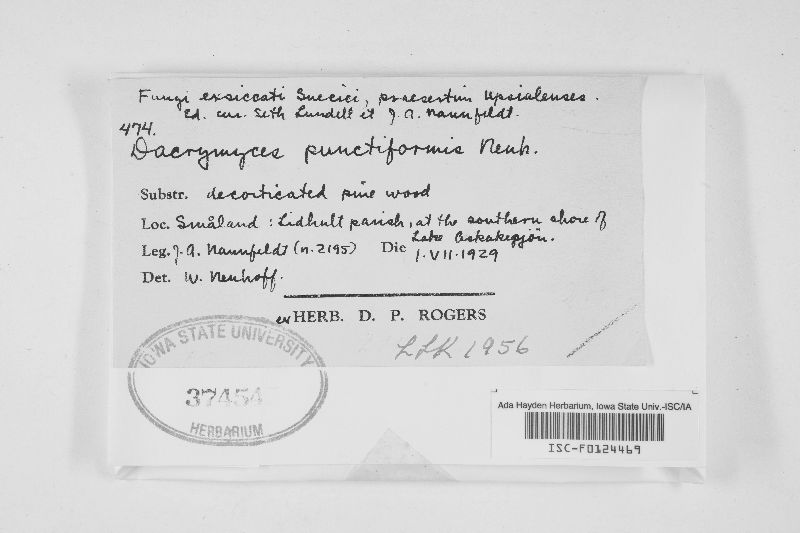 Fungi exsiccati Suecici, praesertim Upsalienses.
Ed. cur. Seth Lundell et J. A. Nannfeldt.
474.
Dacrymyces punctiformis Neuh.
Substr. decorticated pine wood
Loc. Småland: Lidhult parish, at the southern shore of
Lake
Leg. J. A. Nannfeldt (n. 2195) Die 1.VII.1929
Det. W. Neuhoff.
ex HERB. D. P. ROGERS
LSK 1956
IOWA STATE UNIVERSITY
37454
HERBARIUM
Ada Hayden Herbarium, Iowa State Univ.-ISC/IA
ISC-F0124469